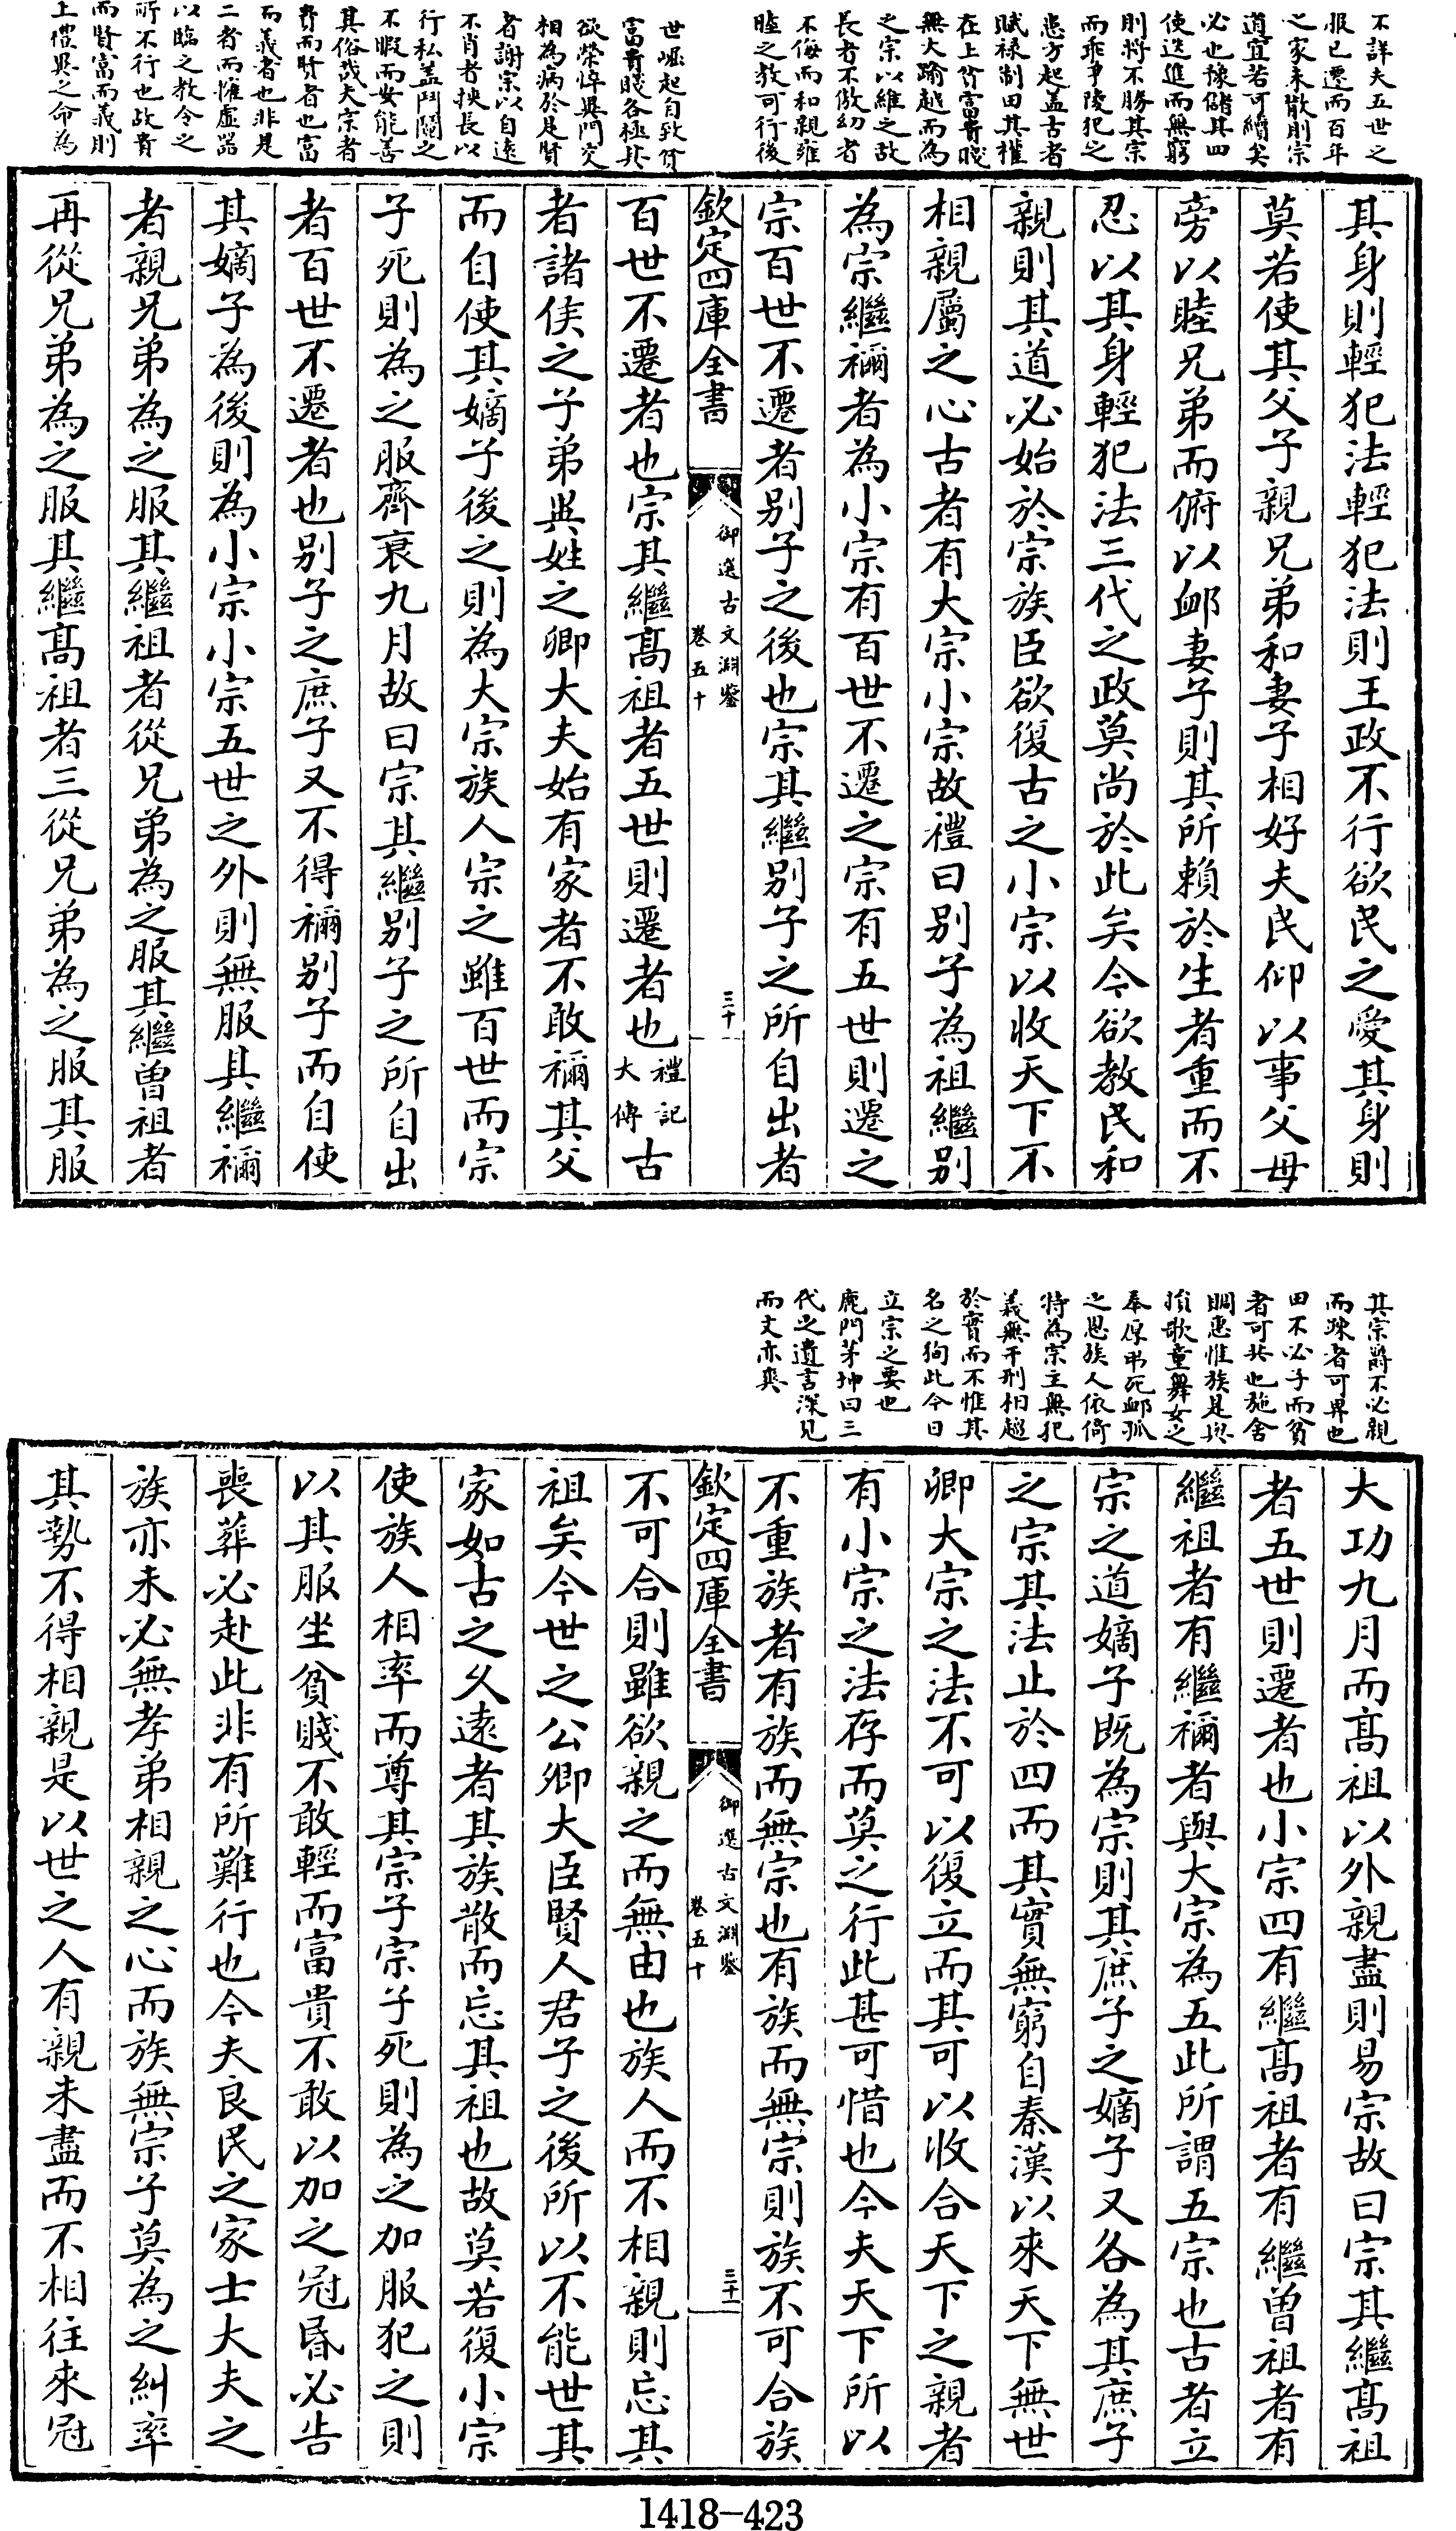 不詳夫五世之
服已遷而百年
之家未散則宗
道宜若可續矣
必也豫儲其四
使迭進而無窮
則將不勝其宗
而乖爭陵犯之
患方起蓋古者
賦祿制田其權
在上貧富貴賤
無大踰越而為
之宗以維之故
長者不傲幼者
不侮而和親雍
睦之教可行後
世崛起自致貧
富貴賤各極其
欲榮悴異門交
相為病於是賢
者謝宗以自遠
不肖者挾長以
行私蓋鬥鬩之
不暇而安能善
其俗哉夫宗者
貴而賢者也富
而義者也非是
二者而擁虛器
以臨之教令之
所不行也故貴
而賢富而義則
上禮與之命為
其身則輕犯法輕犯法則王政不行欲民之愛其身則
莫若使其父子親兄弟和妻子相好夫民仰以事父母
旁以睦兄弟而俯以䘏妻子則其所賴於生者重而不
忍以其身輕犯法三代之政莫尚於此矣今欲教民和
親則其道必始於宗族臣欲復古之小宗以收天下不
相親屬之心古者有大宗小宗故禮曰別子為祖繼別
為宗繼禰者為小宗有百世不遷之宗有五世則遷之
宗百世不遷者別子之後也宗其繼別子之所自出者
欽定四庫全書
御選古文淵鑒
卷五十
三十
百世不遷者也宗其繼高祖者五世則遷者也禮記大傳古
者諸侯之子弟與姓之卿大夫始有家者不敢禰其父
而自使其嫡子後之則為大宗族人宗之雖百世而宗
子死則為之服齊衰九月故曰宗其繼別子之所自出
者百世不遷者也別子之庶子又不得禰別子而自使
其嫡子為後則為小宗小宗五世之外則無服其繼禰
者親兄弟為之服其繼祖者從兄弟為之服其繼曾祖者
再從兄弟為之服其繼高祖者三從兄弟為之服其服
其宗爵不必親
而疎者可畀也
田不必予而貧
者可共也施舍
賙惠惟族是與
捐歌童舞女之
奉厚弔死䘏孤
之恩族人依倚
特為宗主無犯
義無干刑相趨
於實而不惟其
名之狥此今日
立宗之要也
鹿門茅坤曰三
代之遺言深見
而文亦爽
大功九月而高祖以外親盡則易宗故曰宗其繼高祖
者五世則遷者也小宗四有繼高祖者有繼曾祖者有
繼祖者有繼禰者與大宗為五此所謂五宗也古者立
宗之道嫡子既為宗則其庶子之嫡子又各為其庶子
之宗其法止於四而其實無窮自秦漢以來天下無世
卿大宗之法不可以復立而其可以收合天下之親者
有小宗之法存而莫之行此甚可惜也今夫天下所以
不重族者有族而無宗也有族而無宗則族不可合族
欽定四庫全書
御選古文淵鑒
卷五十
三十一
不可合則雖欲親之而無由也族人而不相親則忘其
祖矣今世之公卿大臣賢人君子之後所以不能世其
家如古之久遠者其族散而忘其祖也故莫若復小宗
使族人相率而尊其宗子宗子死則為之加服犯之則
以其服坐貧賤不敢輕而富貴不敢以加之冠昏必告
喪葬必赴此非有所難行也今夫良民之家士大夫之
族亦未必無孝弟相親之心而族無宗子莫為之糾率
其勢不得相親是以世之人有親未盡而不相往來冠
1418-423